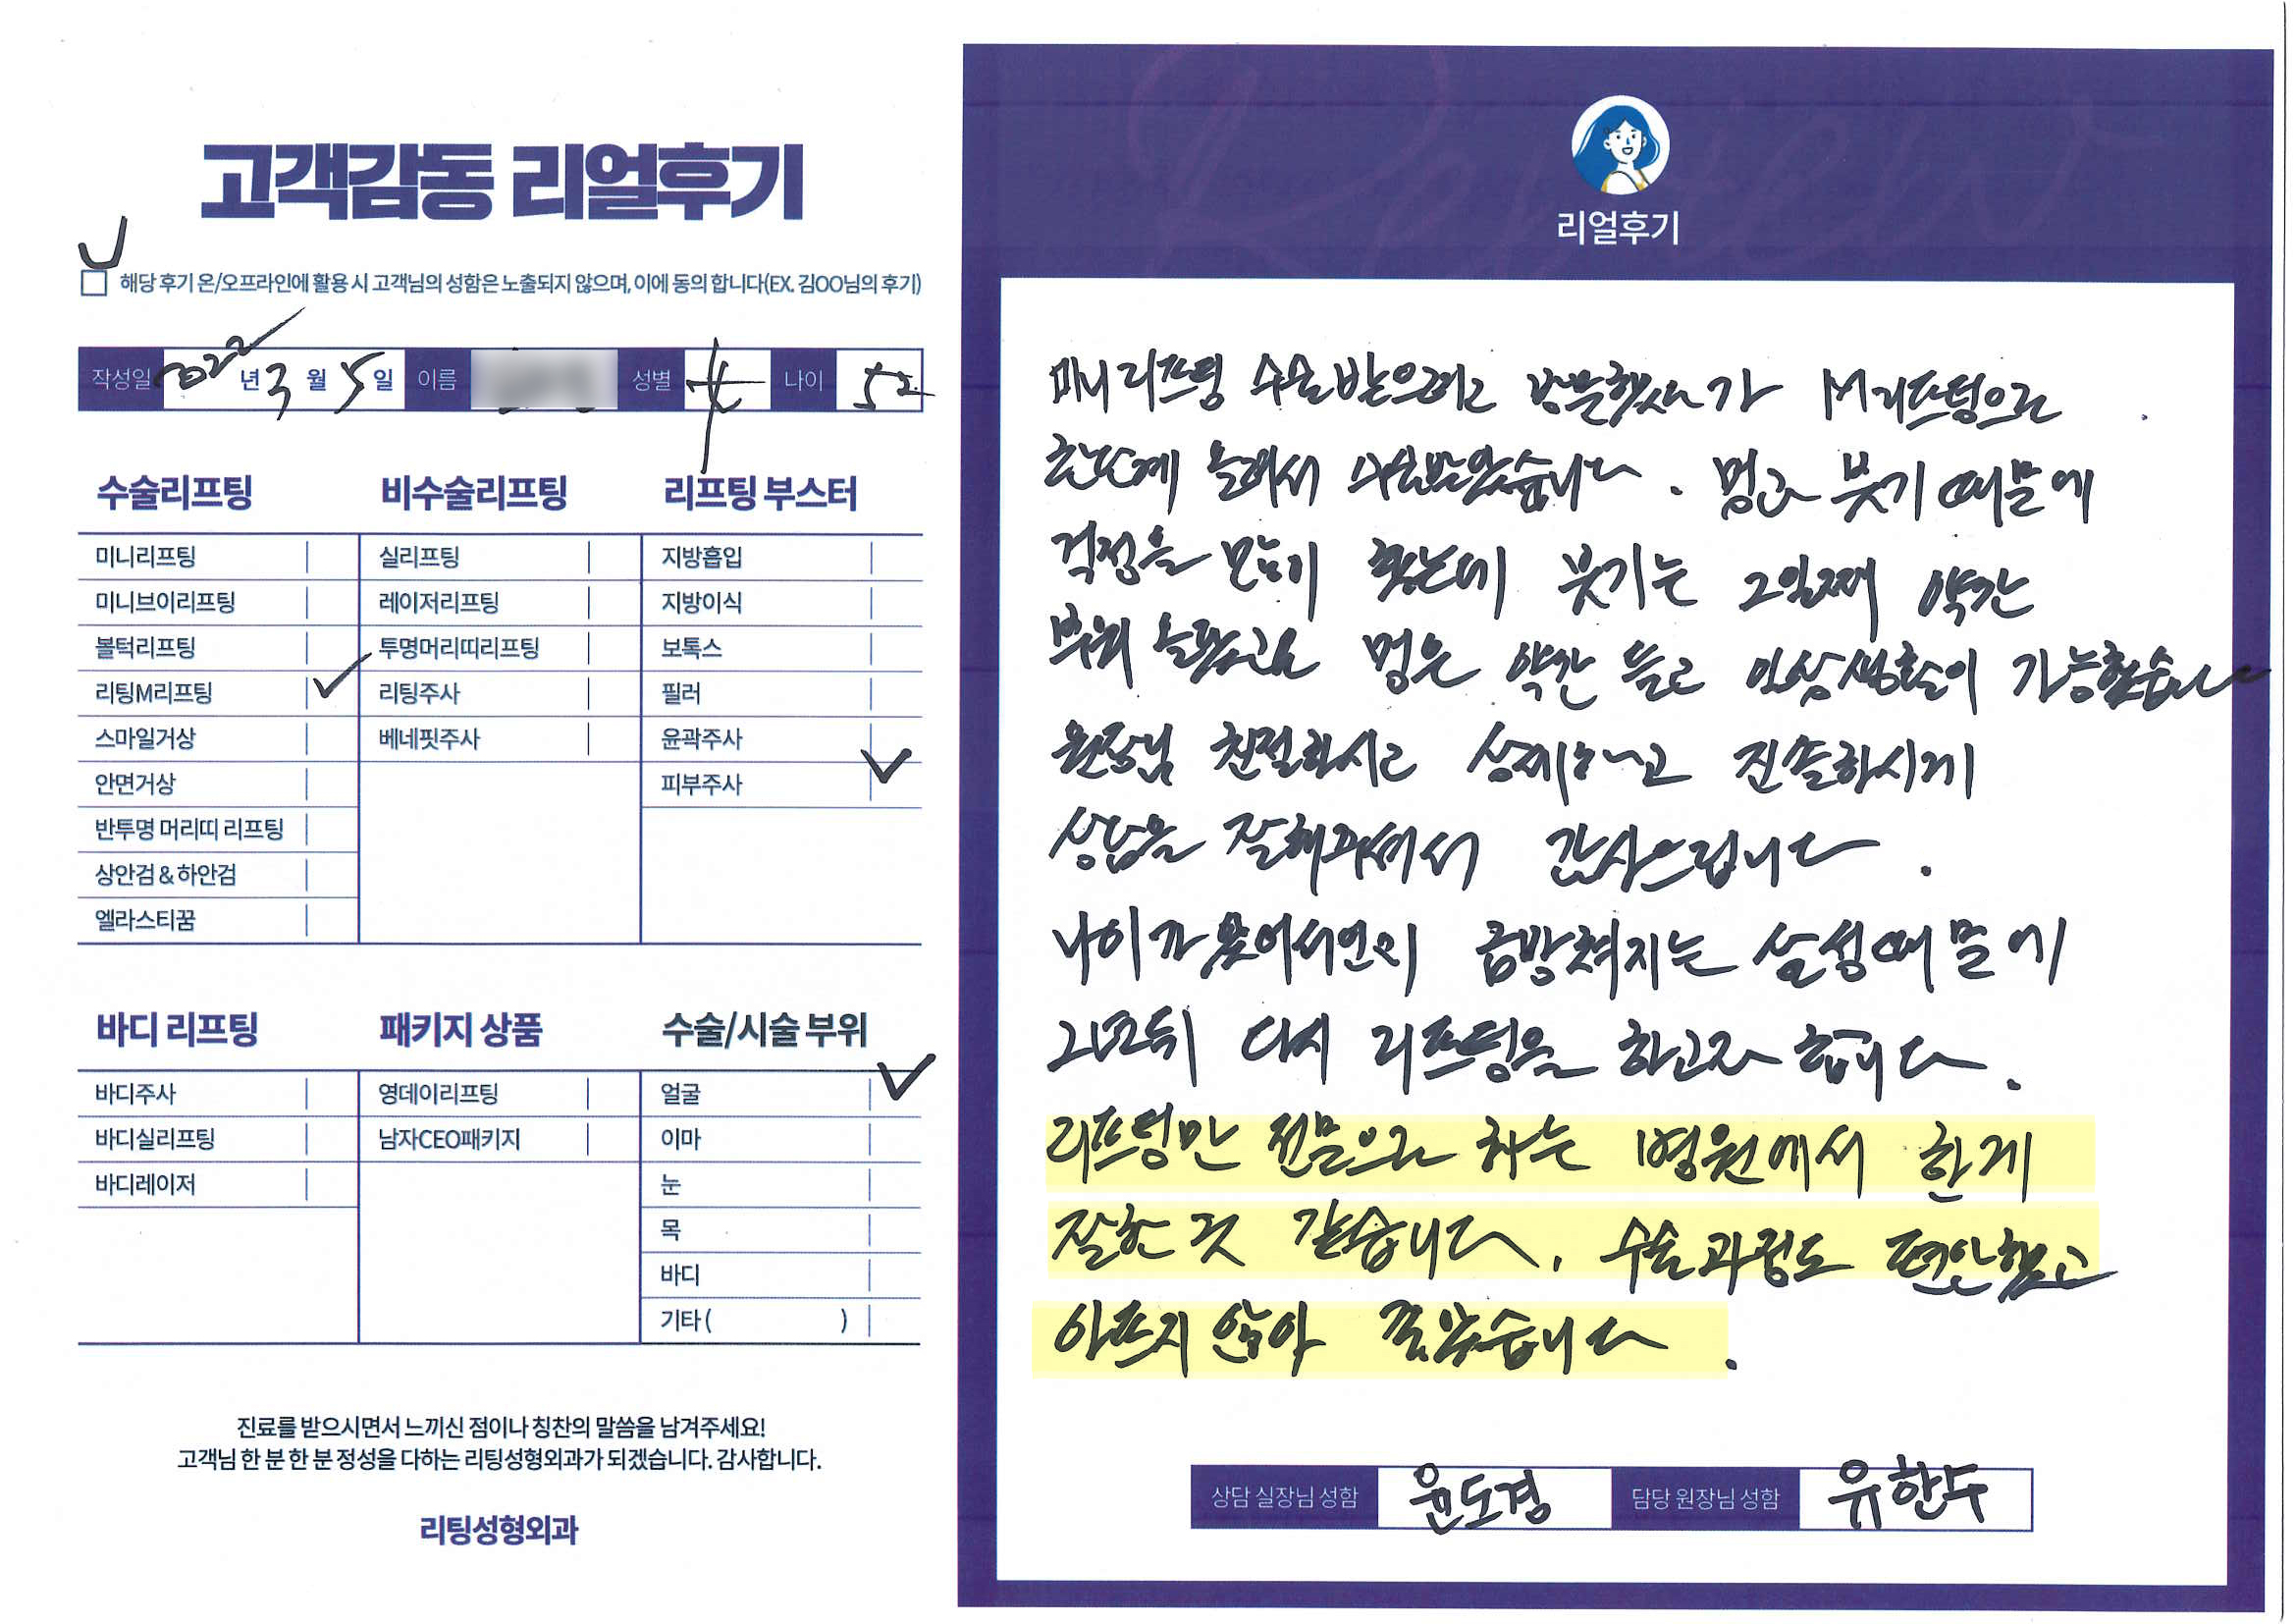 고객감동 리얼후기
해당 후기 온/오프라인에 활용 시 고객님의 성함은 노출되지 않으며, 이에 동의 합니다(EX. 김OO님의 후기)
작성일 2022년 3월 5일 이름 성별 女 나이 52
수술리프팅
미니리프팅
미니브이리프팅
볼턱리프팅
리팅M리프팅 ✓
스마일거상
안면거상
반투명 머리띠 리프팅
상안검 & 하안검
엘라스티꿈
비수술리프팅
실리프팅
레이저리프팅
투명머리띠리프팅
리팅주사
베네핏주사
리프팅 부스터
지방흡입
지방이식
보톡스
필러
윤곽주사
피부주사 ✓
바디 리프팅
바디주사
바디실리프팅
바디레이저
패키지 상품
영데이리프팅
남자CEO패키지
수술/시술 부위
얼굴 ✓
이마
눈
목
바디
기타 ( )
진료를 받으시면서 느끼신 점이나 칭찬의 말씀을 남겨주세요!
고객님 한 분 한 분 정성을 다하는 리팅성형외과가 되겠습니다. 감사합니다.
리팅성형외과
Review
리얼후기
미니리프팅 수술받으려고 방문했다가 M리프팅으로
수술받았습니다. 멍과 붓기 때문에
걱정을 많이 했는데 붓기는 2일째 약간
부위 멍은 약간 들고 일상생활이 가능했습니다
원장님 친절하시고 상세하고 진솔하시게
상담을 잘해주셔서 감사드립니다.
나이가 있어서인지 금방 쳐지는 살성때문에
2년뒤 다시 리프팅을 하고자 합니다.
리프팅만 전문으로 하는 병원에서 한게
잘한 것 같습니다. 수술과정도 편안했고
아프지 않아 좋았습니다.
상담 실장님 성함 윤도경 담당 원장님 성함 유한수